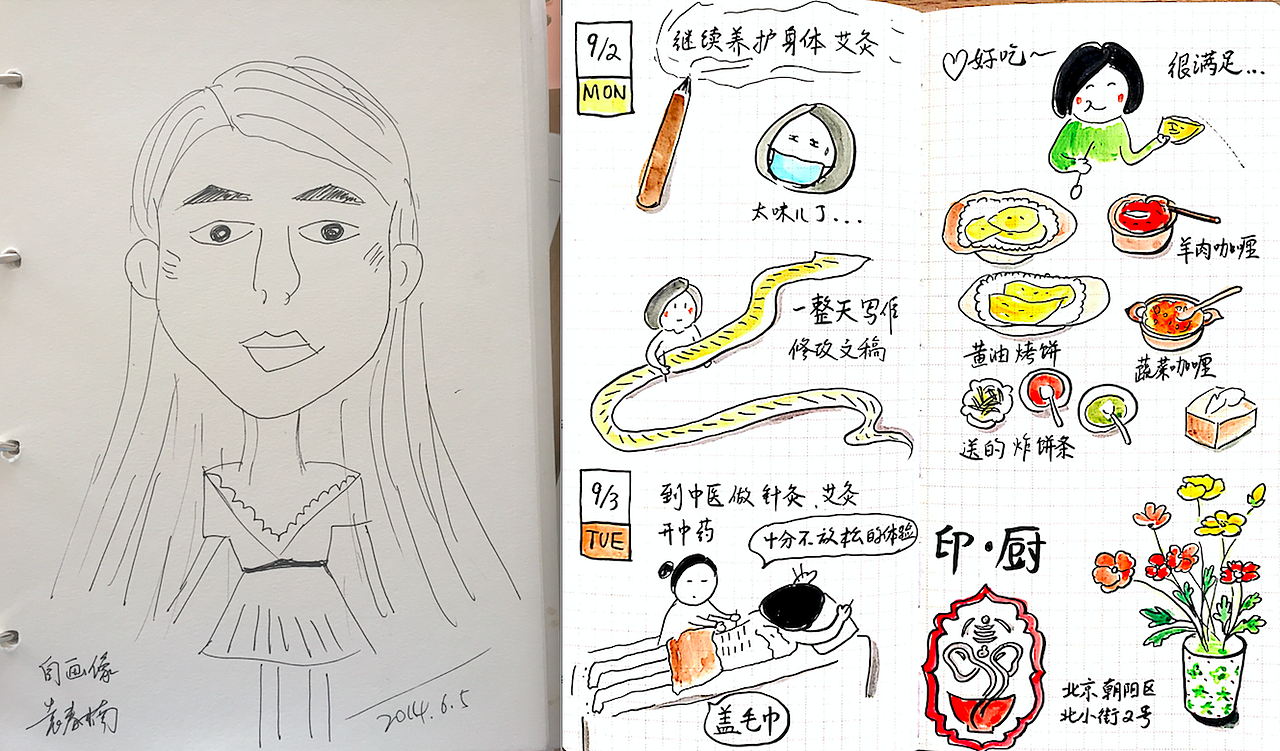 自画像
袁春楠
2014.6.5
9/2
MON
继续养护身体 艾灸
太味儿了...
一整天写作
修改文稿
9/3
TUE
到中医做针灸、艾灸
开中药
十分不放松的体验
盖毛巾
♡好吃~
很满足...
羊肉咖喱
黄油烤饼
蔬菜咖喱
送的炸饼条
印·厨
北京朝阳区
北小街2号